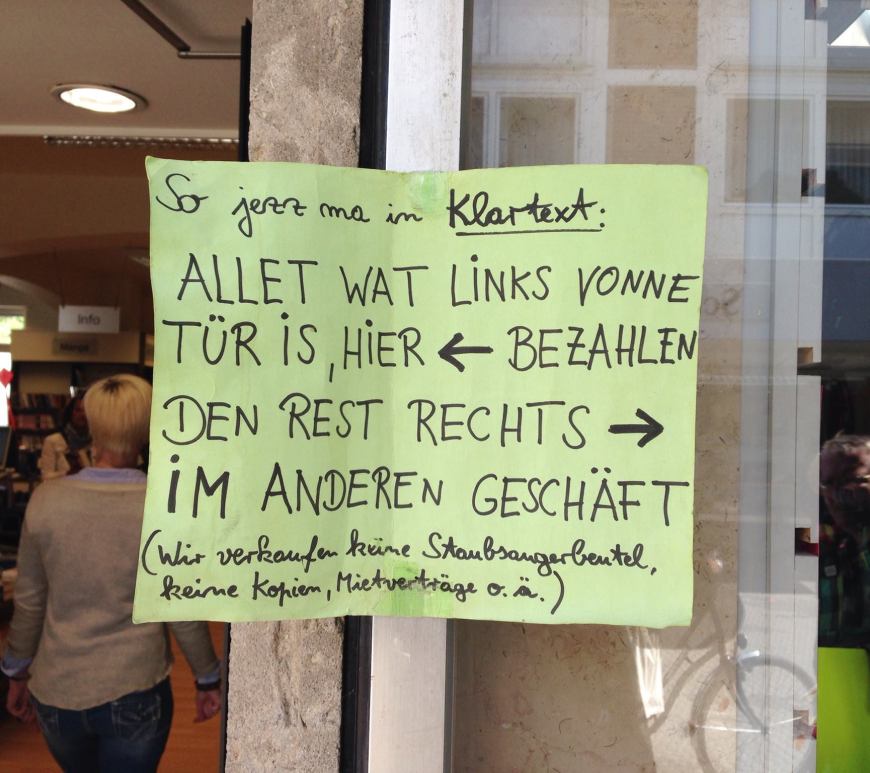 So jezz ma in Klartext:
ALLET WAT LINKS VONNE
TÜR IS, HIER ← BEZAHLEN
DEN REST RECHTS →
IM ANDEREN GESCHÄFT
(Wir verkaufen keine Staubsaugerbeutel,
keine Kopien, Mietverträge o. ä.)
Info
Manga